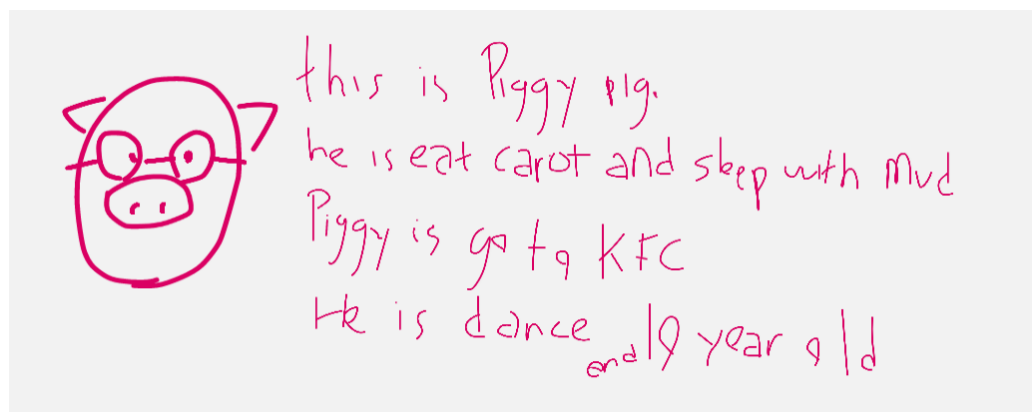 this is Piggy pig.
he is eat carot and sleep with mud
Piggy is go to KFC
He is dance and 19 year old